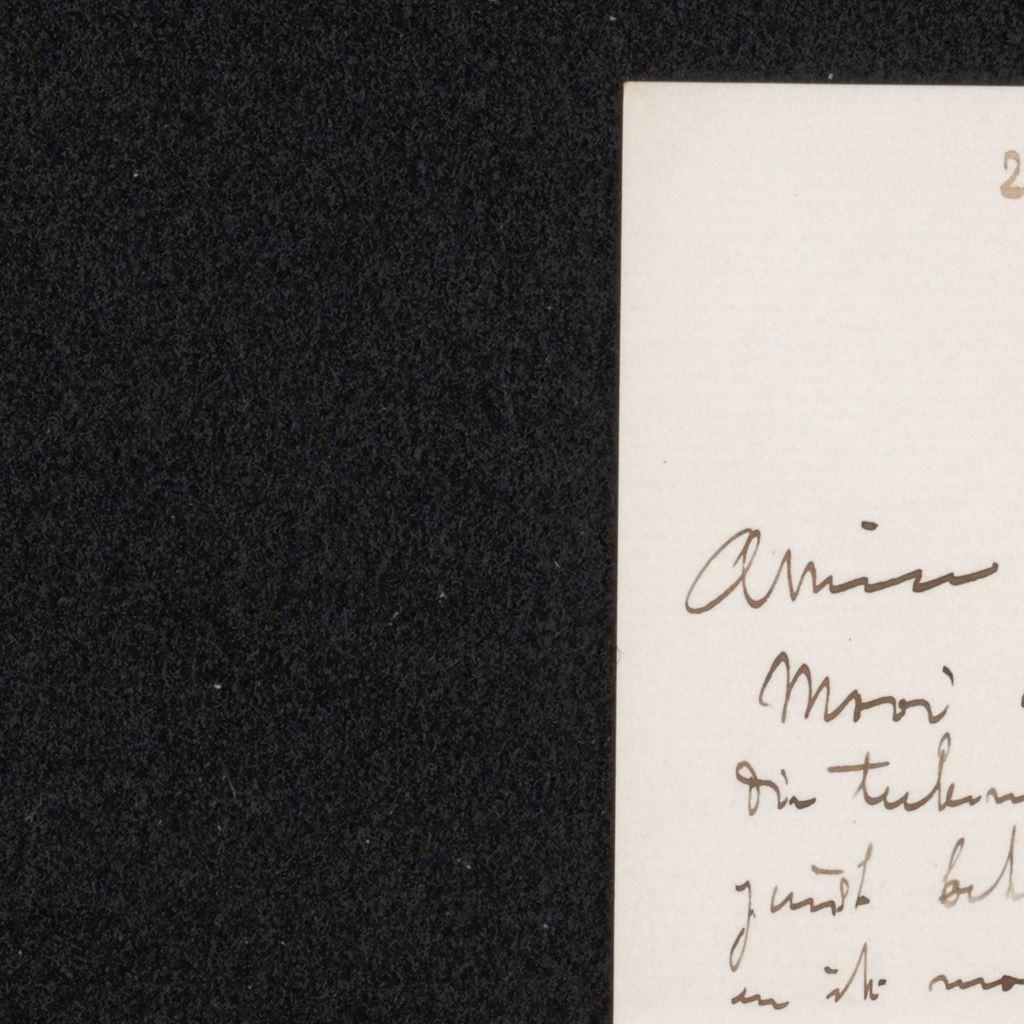 2
Amice
Mooi
die teeken
juist beh
en ik mo